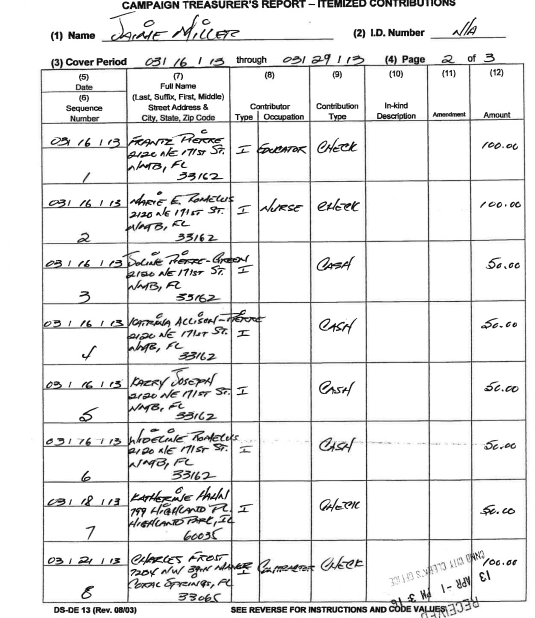 CAMPAIGN TREASURER'S REPORT – ITEMIZED CONTRIBUTIONS
(1) Name JAIME MILLER (2) I.D. Number N/A
(3) Cover Period 03 / 16 / 13 through 03 / 29 / 13 (4) Page 2 of 3
(5) (7) (8) (9) (10) (11) (12)
Date Full Name
(6) (Last, Suffix, First, Middle)
Sequence Street Address & Contributor Contribution In-kind
Number City, State, Zip Code Type Occupation Type Description Amendment Amount
03 / 16 / 13 FRANTZ PIERRE I EDUCATOR CHECK 100.00
2120 NE 171ST ST.
NMB, FL
1 33162
03 / 16 / 13 MARIE E. ROMELUS I NURSE CHECK 100.00
2120 NE 171ST ST.
NMB, FL
2 33162
03 / 16 / 13 PIERRE-GREEN I CASH 50.00
2120 NE 171ST ST.
NMB, FL
3 33162
03 / 16 / 13 KATRINA ALLISON-PIERRE I CASH 50.00
2120 NE 171ST ST.
NMB, FL
4 33162
03 / 16 / 13 KARRY JOSEPH I CASH 50.00
2120 NE 171ST ST.
NMB, FL
5 33162
03 / 16 / 13 WIDELINE ROMELUS I CASH 50.00
2120 NE 171ST ST.
NMB, FL
6 33162
03 / 18 / 13 KATHERINE HAHN I CHECK 50.00
799 HIGHLAND PL.
HIGHLAND PARK, IL
7 60035
03 / 21 / 13 CHARLES FROST I CONTRACTOR CHECK 100.00
7204 NW 39TH MANOR
CORAL SPRINGS, FL
8 33065
CITY CLERK'S OFFICE
13 APR -1 PM 3:
RECEIVED
DS-DE 13 (Rev. 08/03) SEE REVERSE FOR INSTRUCTIONS AND CODE VALUES